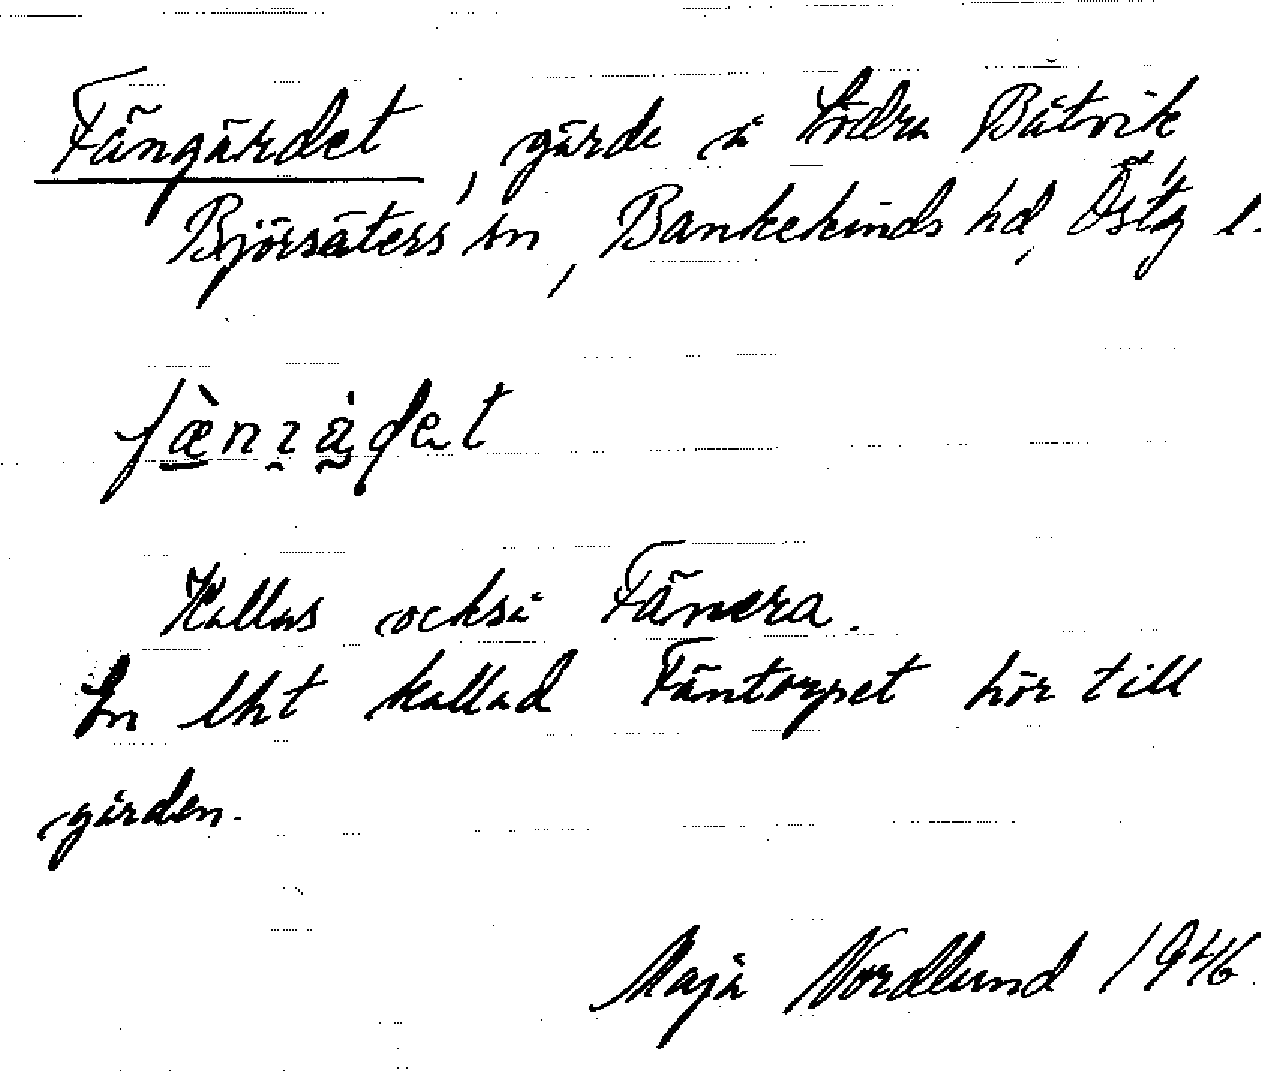 Fängärdet, gärde å Södra Båtvik
Björsäters sn, Bankekinds hd, Östg l.
Kallas också Fänera.
En lht kallad Fäntorpet hör till
gården.
Maja Nordlund 1946.